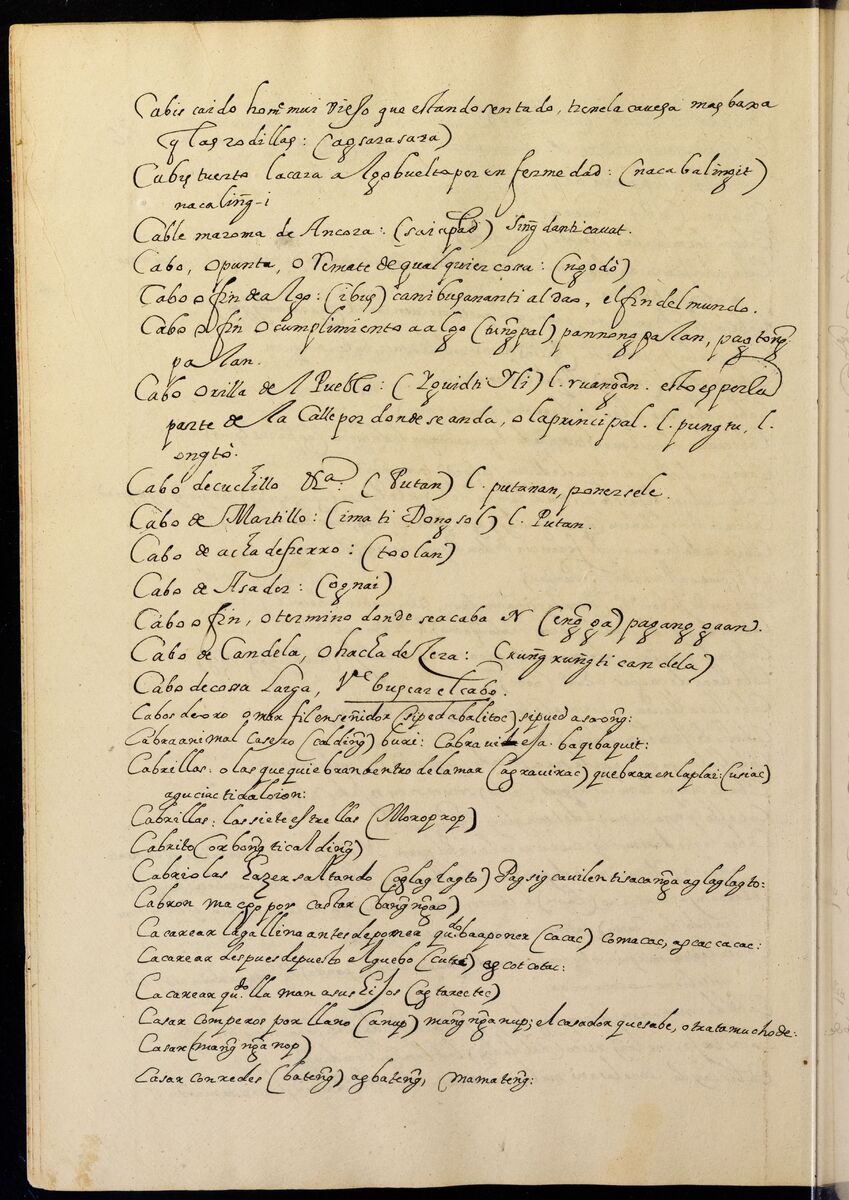 Cabis caido hom.e mui viejo que estando sentado, tiene la caveça mas baxa
q̃ las rodillas: (agsarasara)
Cabis tuerto la cara a lgo buelto por en fermedad: (naca balingit)
nacaling̃-i
Cable maroma de Ancora: (saiapad) sing̃ danti cauat.
Cabo, o punta, o Remate de qualquier cosa: (ngodò)
Cabo o fin de algo: (ibus) canibusananti aldao, el fin del mundo.
Cabo o fin o cumplimiento a algo (tung̃pal) pannongpalan, pagtong̃
palan.
Cabo orilla del Pueblo: (Iguidti Ili) l. ruangan. esto es por la
parte de la Calle por donde se anda, o la principal. l. pungtu, l.
ongtò.
Cabo de cuchillo &.a: (Putan) l. putanan, ponersele.
Cabo de Martillo: (ima ti Dongsol) l. Putan.
Cabo de acha de fierro: (toolan)
Cabo de Asador: (ognai)
Cabo o fin, o termino donde se acaba N (eng̃ga) pagang gaan).
Cabo de Candela, o hacha de Zera: (rung̃rung̃ti candela)
Cabo de cossa larga, V.e buscar el cabo.
Cabos de oro o marfil enseñidor (sipedabalitoc) sipued asaong̃:
Cabra animal casero (calding̃) buri: Cabra vieja. baqibaquit:
Cabrillas: o las que quiebran dentro de la mar (agrauirac) quebrar en la plai: (usiac)
aguciac ti daloion:
Cabrillas: las siete estrellas (Moroporop)
Cabrito (orbong̃ ti calding̃)
Cabriolas hazer saltando (aglaglagto) Pagsigcauilentisacang̃a aglaglagto:
Cabron macho por castar (bang̃ng̃ao)
Cacarear la gallina antes de poner a qu.do ba a poner (cacac) comacac, agcaccacac:
Cacarear despues de puesto el guebo (cutac) ag cotcotac:
Cacarear qu.do lla man a sus hijos (agtarectec)
Casar com peros por llano (anup) mang̃ng̃anup; el casador que sabe, o trata mucho de:
Casar (mang̃ng̃anop)
Casar con redes (bateng̃) agbateng̃, (mamateng̃: